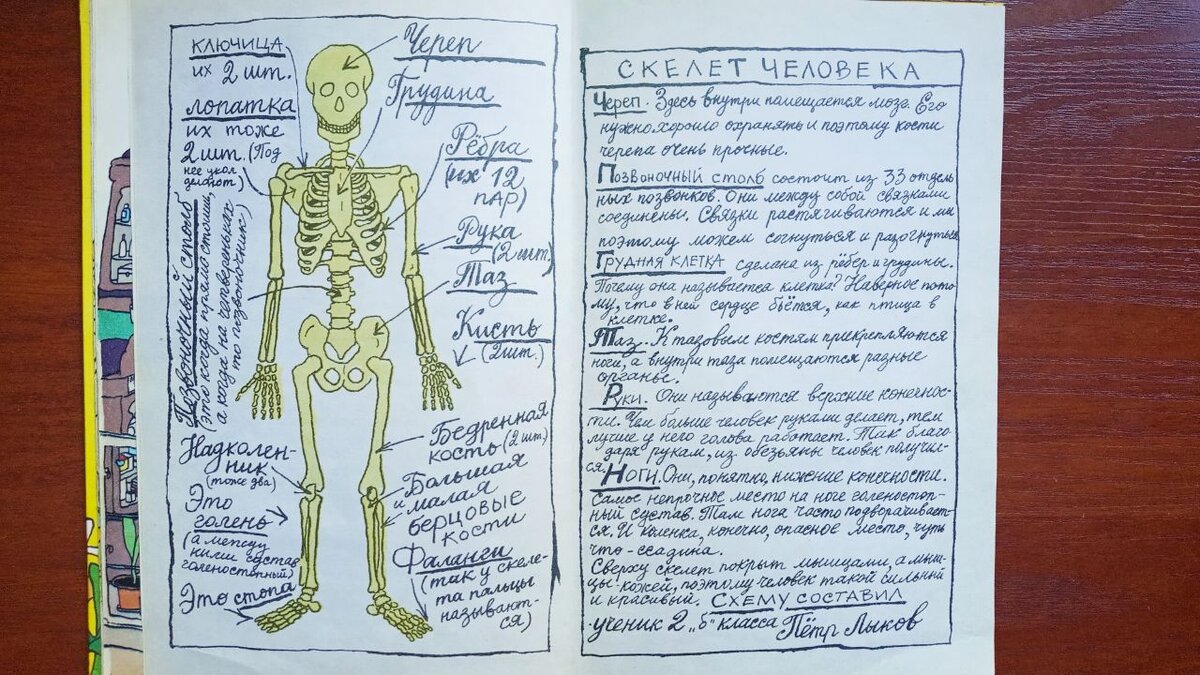 КЛЮЧИЦА
их 2 шт.
ЛОПАТКА
их тоже
2 шт. (Под
нее укол
делают)
Позвоночный столб
(Это когда прямо стоишь,
а когда на четвереньках
то позвоночник)
Надколен-
ник
(тоже два)
Это
голень
(а между
ними сустав
голеностопный)
Это стопа
Череп
Грудина
Рёбра
(их 12
ПАР)
Рука
(2 шт.)
Таз
Кисть
(2 шт.)
Бедренная
кость (2 шт.)
Большая
и малая
берцовые
кости
Фаланги
(так у скеле-
та пальцы
называют-
ся)
СКЕЛЕТ ЧЕЛОВЕКА
Череп. Здесь внутри помещается мозг. Его
нужно хорошо охранять и поэтому кости
черепа очень прочные.
Позвоночный столб состоит из 33 отдель
ных позвонков. Они между собой связками
соединены. Связки растягиваются и мы
поэтому можем согнуться и разогнуться.
Грудная клетка сделана из рёбер и грудины.
Почему она называется клетка? Наверное пото
му, что в ней сердце бьётся, как птица в
клетке.
Таз. К тазовым костям прикрепляются
ноги, а внутри таза помещаются разные
органы.
Руки. Они называются верхние конечнос-
ти. Чем больше человек руками делает, тем
лучше у него голова работает. Так благо
даря рукам, из обезьяны человек получил-
ся.
Ноги. Они, понятно, нижние конечности.
Самое непрочное место на ноге голеностоп-
ный сустав. Там нога часто подворачивает-
ся. И коленка, конечно, опасное место, чуть
что - ссадина.
Сверху скелет покрыт мышцами, а мыш-
цы - кожей, поэтому человек такой сильный
и красивый. СХЕМУ СОСТАВИЛ
ученик 2 „б" класса Пётр Лыков